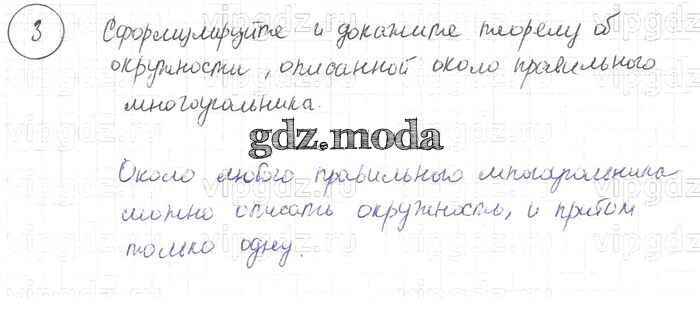 3 Сформулируйте и докажите теорему об
окружности, описанной около правильного
многоугольника.
gdz.moda
Около любого правильного многоугольника
можно описать окружность, и притом
только одну.